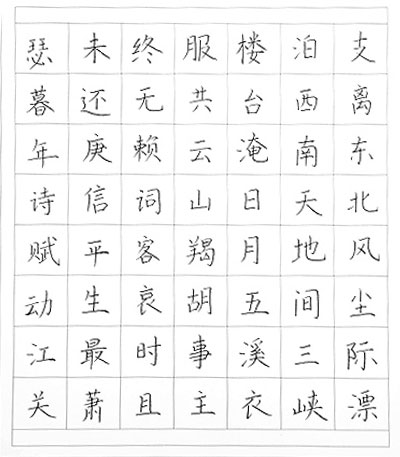 支离东北风尘际漂
泊西南天地间三峡
楼台淹日月五溪衣
服共云山羯胡事主
终无赖词客哀时且
未还庚信平生最萧
瑟暮年诗赋动江关